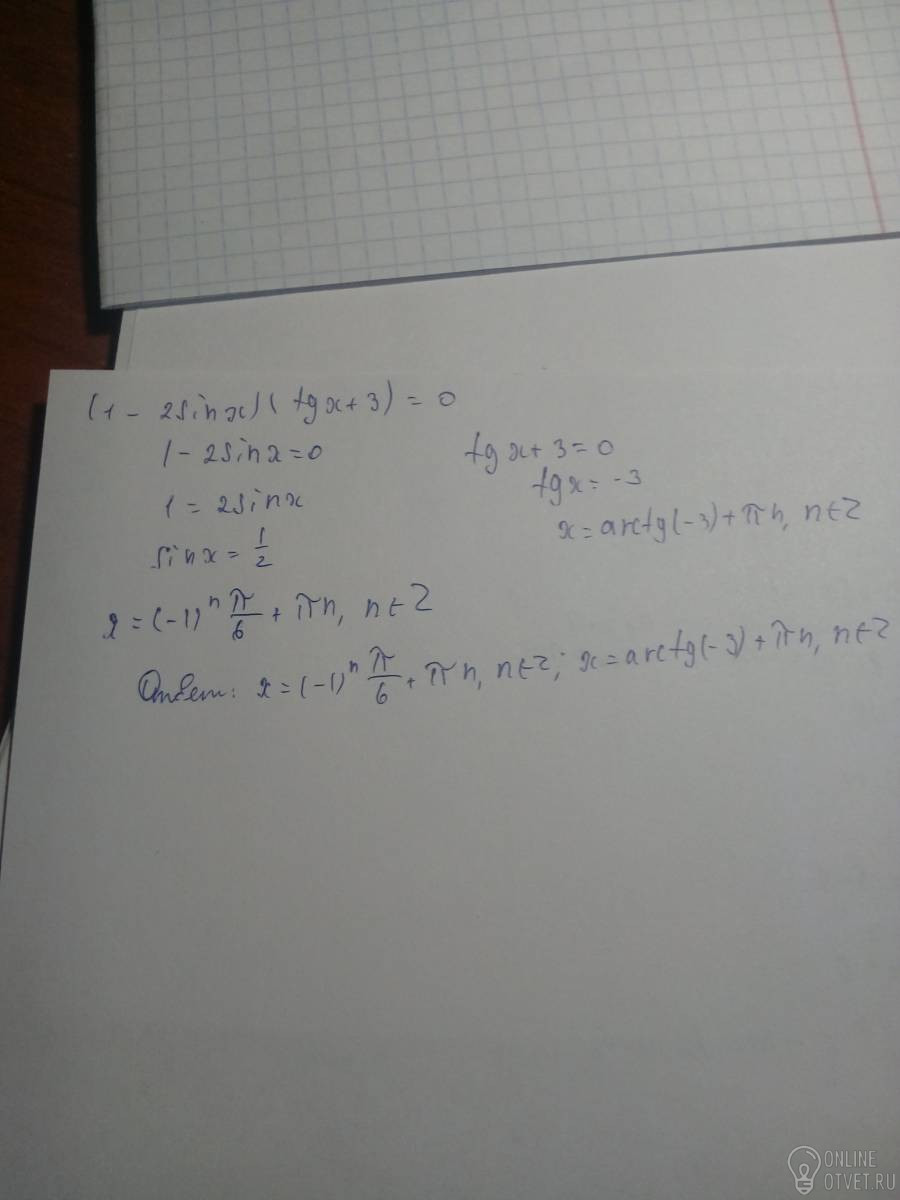 (1 - 2sinx)(tgx+3) = 0
1 - 2sinx=0
1 = 2sinx
sinx = 1/2
tgx+3=0
tgx= -3
x=arctg(-3)+πn, n∈Z
x=(-1)^n π/6 + πn, n∈Z
Ответ: x=(-1)^n π/6 + πn, n∈Z; x=arctg(-3)+πn, n∈Z
ONLINE
OTVET.RU